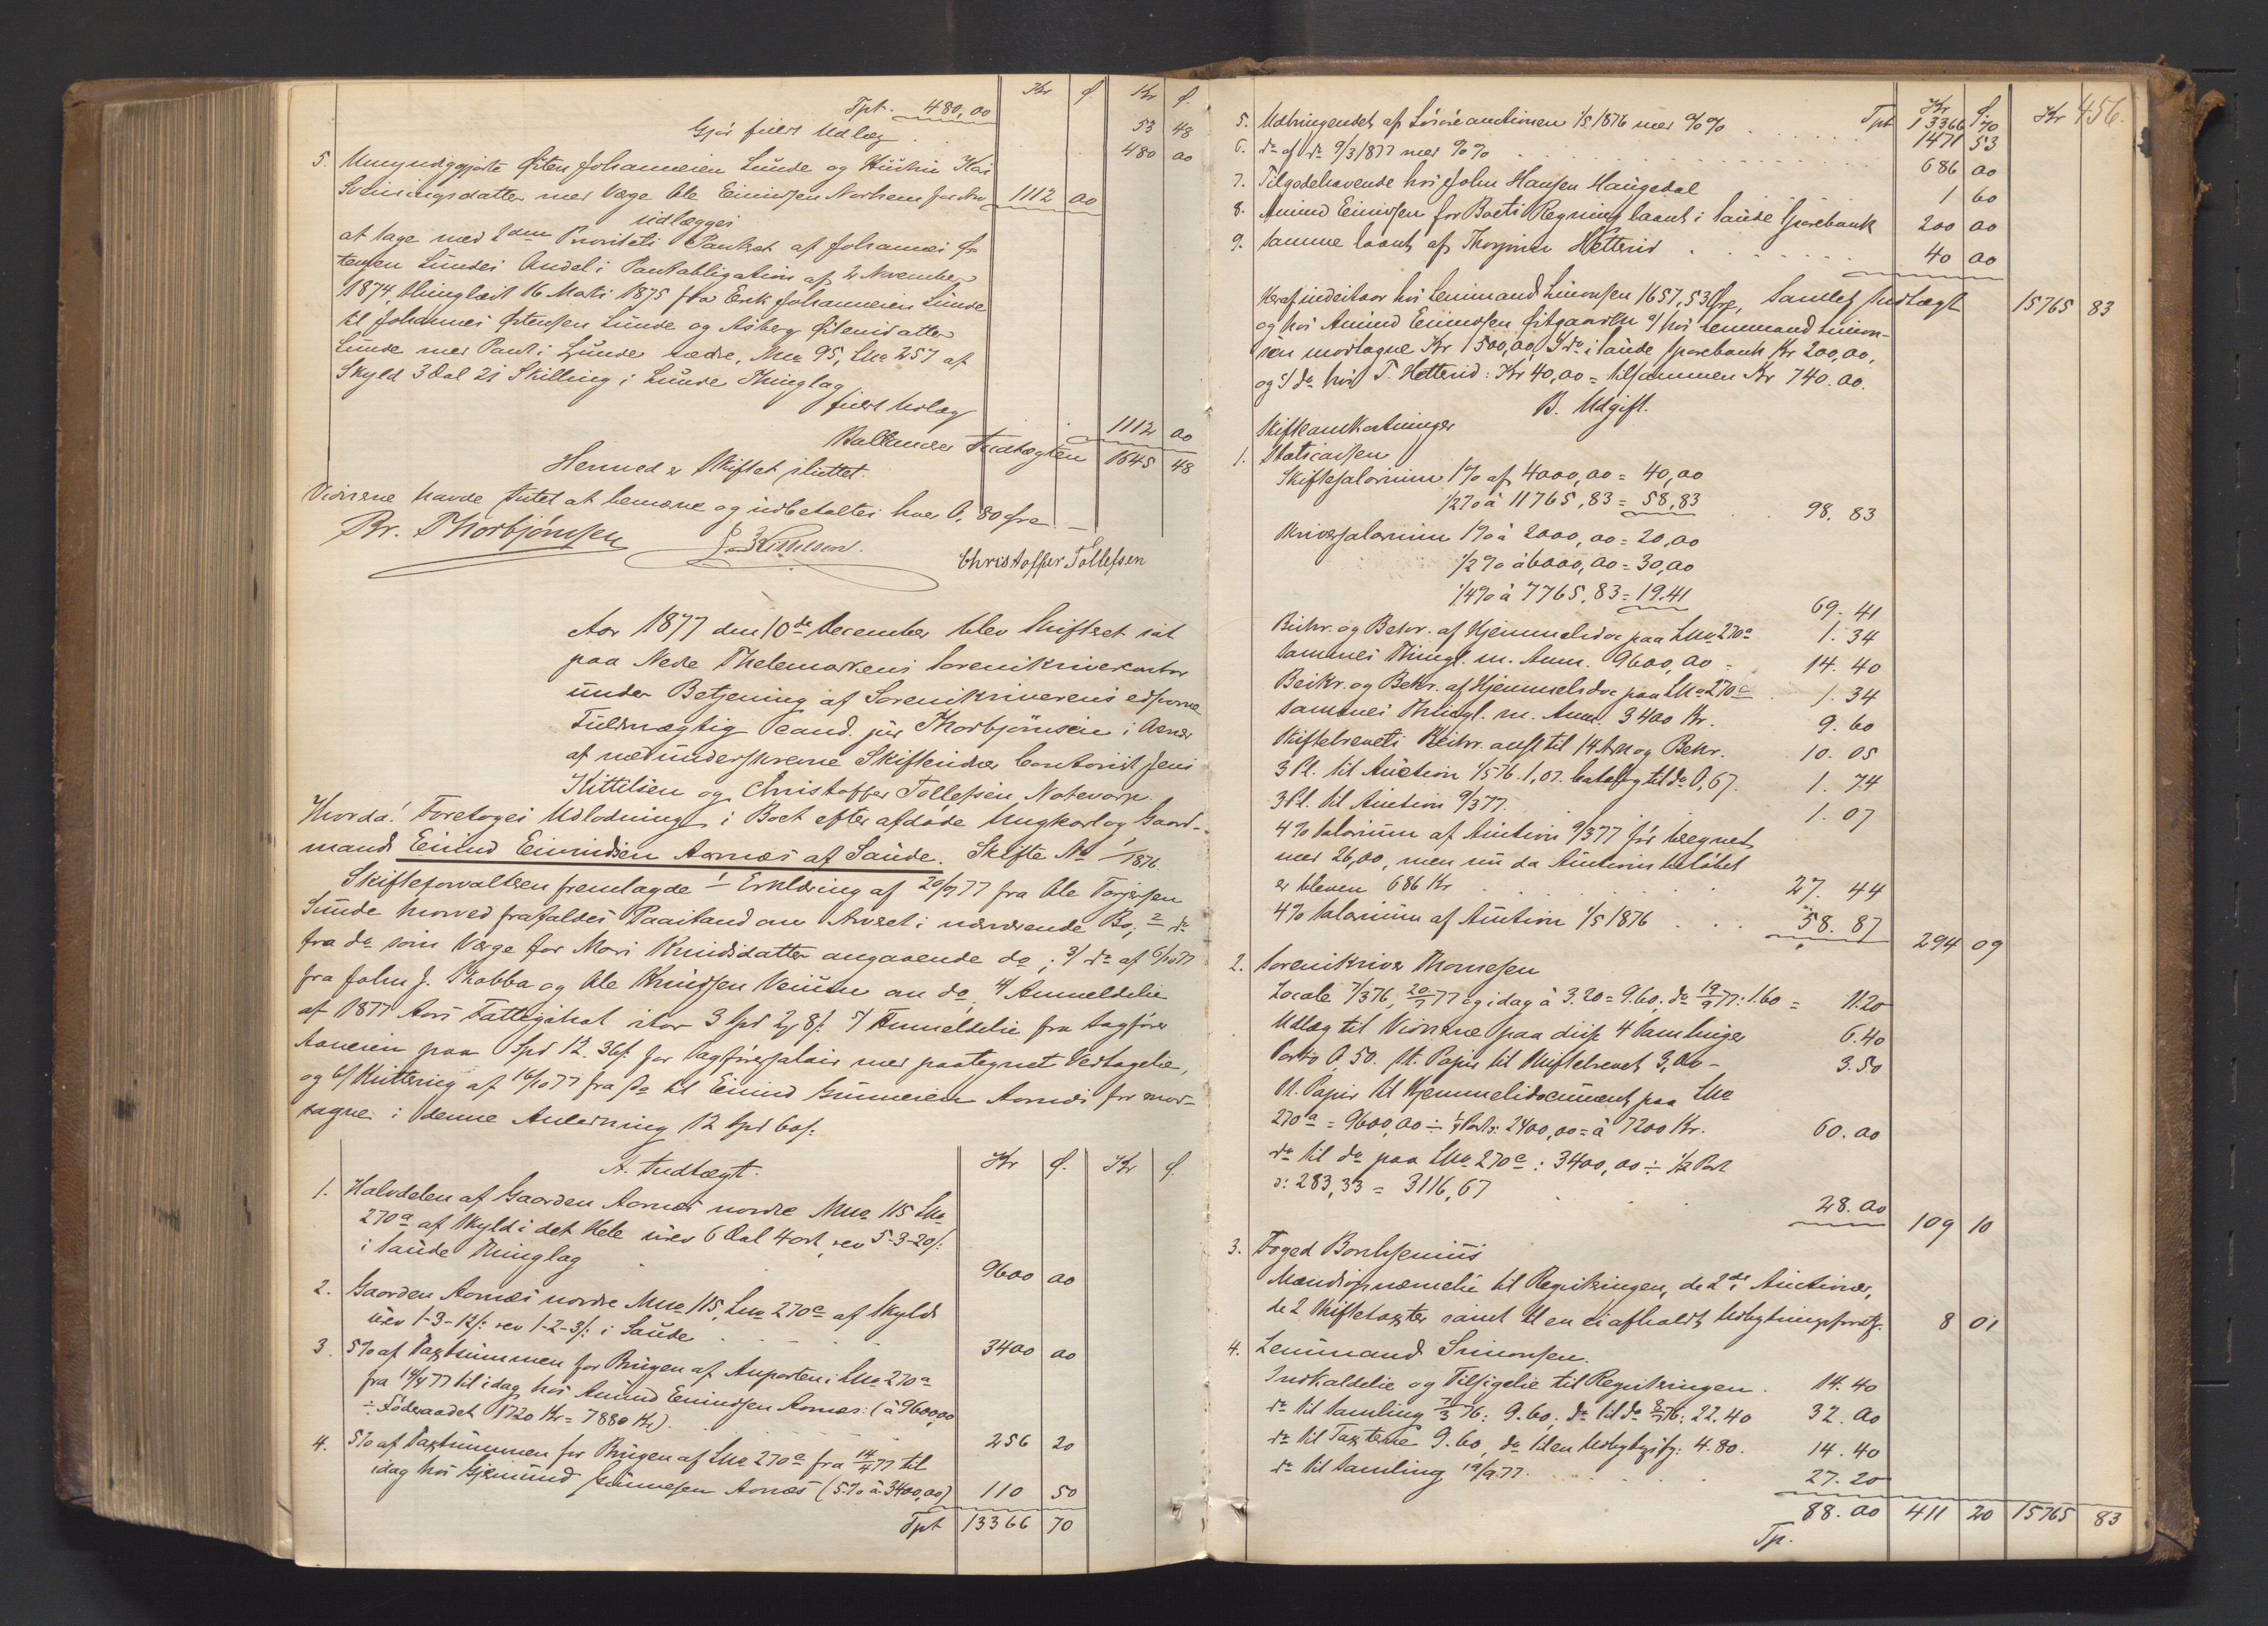 Kr ø Kr ø.
Tpt. 480,00
Gjør fuldt Udlæg 53 48
480 00
5. Umyndiggjorte Østen Johannesen Lunde og Hustru Kari
Sveinungsdatter med Værge Ole Eivindsen Norheim 1112 00
udlægges
at tage med 2den Prioritets Panteret af Johannes Øs-
tensen Lundes Andel i Pantobligation af 2 November
1874, thinglæst 16 Marts 1875 fra Erik Johannesen Lunde
til Johannes Østensen Lunde og Asberg Østensdatter
Lunde med Pant i Lunde nedre, Mno 95, Lno 257 af
Skyld 3 Dal 21 Skilling i Lunde Thinglag
fuldt Udlæg 1112 00
Ballancer Indtægten 1645 48
Hermed er Skiftet sluttet.
Vidnerne havde Intet at bemærke og udbetaltes hver 0,80 Øre.—
Br. Thorbjørnsen J. Kittilsen. Christoffer Tollefsen
Aar 1877 den 10de December blev Skifteret sat
paa Nedre Thelemarkens Sorenskrivercontor
under Betjening af Sorenskriverens edsvorne
Fuldmægtig cand. jur Thorbjørnsen i Overvær
af nedunderskrevne Skiftevidner Contorist Jens
Kittilsen og Christoffer Tollefsen Notevarp.
Hvorda! Foretoges Udlodning i Boet efter afdøde Ungkarl og Gaard-
mand Eivind Eivindsen Aarnæs af Saude. Skifte No 1/1876.
Skifteforvalteren fremlagde 1/ Erklæring af 20/9 77 fra Ole Torjersen
Sunde hvorved frafaldes Paastand om Arveret i nærværende Bo; 2/ do
fra do som Værge for Mari Knudsdatter angaaende do; 3/ do af 6/10 77
fra John J. Skobba og Ole Knudsen Veium om do, 4/ Anmeldelse
af 1877 Aars Fattigskat stor 3 Spd 2, 8 s: 5/ Anmeldelse fra Sagfører
Aanesen paa Spd 12. 36 s: for Sagførersalair med paategnet Vedtagelse,
og 6/ Kvittering af 16/10 77 fra do til Eivind Gunnersen Aarnæs for mod-
tagne i denne Anledning 12 Spd 60 s:
A. Indtægt. Kr ø. Kr ø.
1. Halvdelen af Gaarden Aarnæs nordre Mno 115 Lno
270a af Skyld i det Hele urev 6 Dal 4 ort, rev 5-3-20 s:
i Saude Thinglag 9600 00
2. Gaarden Aarnæs nordre Mno 115, Lno 270c af Skyld
urev 1-3-12 s: rev 1-2-3 s: i Saude 3400 00
3. 5% af Taxtsummen for Brugen af Anparten i Lno 270a
fra 14/4 77 til idag hos Amund Eivindsen Aarnæs: (à 9600,00
÷ Føderaadet 1720 Kr = 7880 Kr). 256 20
4. 5% af Taxtsummen for Brugen af Lno 270c fra 14/4 77 til
idag hos Gjermund Gunnersen Aarnæs (5% à 3400,00) 110 50
Tpt 13366 70
456.
Kr ø. Kr
Tpt 13366 70
5. Udbringendet af Løsøreauctionen 1/5 1876 med %% 1471 53
6. do af do 9/3 1877 med %% 686 00
7. Tilgodehavende hos John Hansen Haugedal 1 60
8. Amund Eivindsen for Boets Regning laant i Saude Sparebank 200 00
9. Samme laant af Thorjus Hetterid 40 00
Samlet Indtægt 15765 83
Heraf indestaar hos Lensmand Simonsen 1657,53 Øre,
og hos Amund Eivindsen a/ hos Lensmand Simon-
sen modtagne Kr 500,00, b/ do i Saude Sparebank Kr 200,00,
og c/ do hos T. Hetterid: Kr 40,00 = tilsammen Kr 740.00.
B. Udgift.
Skifteomkostninger
1. Statscassen
Skiftesalarium 1% af 4000,00 = 40,00
1/2% à 11765,83 = 58,83 98. 83
Skriversalarium 1% à 2000,00 = 20,00
1/2% à 6000,00 = 30,00
1/4% à 7765,83 = 19.41 69. 41
Beskr. og Bekr. af Hjemmelsdoc paa Lno 270a 1. 34
Sammes Thingl. m. Anm. 9600,00 = 14. 40
Beskr. og Bekr. af Hjemmelsdoc paa Lno 270c 1. 34
Sammes Thingl. m. Anm. 3400 Kr. 9. 60
Skiftebrevets Beskr. ansl til 14 Ark og Bekr. 10. 05
3 Pl. til Auction 1/5 76. 1,07. Catalog til do 0,67. 1. 74
3 Pl. til Auction 9/3 77. 1. 07
4% Salarium af Auction 9/3 77 før beregnet
med 26,00, men nu da Auctionsbeløbet
er bleven 686 Kr 27. 44
4% Salarium af Auction 1/5 1876 58. 87
294 09
2. Sorenskriver Thomesen
Locale 7/3 76, 20/7 77 og idag à 3.20 = 9.60, do 19/9 77: 1.60 = 11.20
Udlæg til Vidnerne paa disse 4 Samlinger 6.40
Porto 0,50. St. Papir til Skiftebrevet 3,00 – 3.50
St. Papir til Hjemmelsdocument paa Lno
270a = 9600,00 ÷ 1/4 Part: 2400,00 = à 7200 Kr. 60.00
do til do paa Lno 270c: 3400,00 ÷ 1/12 Part
ɔ: 283,33 = 3116,67 28.00
109 10
3. Foged Borchsenius
Mændsopnævnelse til Registeringen, de 2de Auctioner,
de 2 Skiftetaxter samt til en ei afholdt Udbygningsforretg. 8 01
4. Lensmand Simonsen.
Indkaldelse og Tilsigelse til Registeringen. 14.40
do til Samling 7/3 76: 9.60, do til do 8/7 76: 22.40 32.00
do til Taxterne 9.60, do til en Udbygngsfg: 4.80. 14.40
do til Samling 19/9 77. 27.20
88.00 411 20 15765 83
Tp.